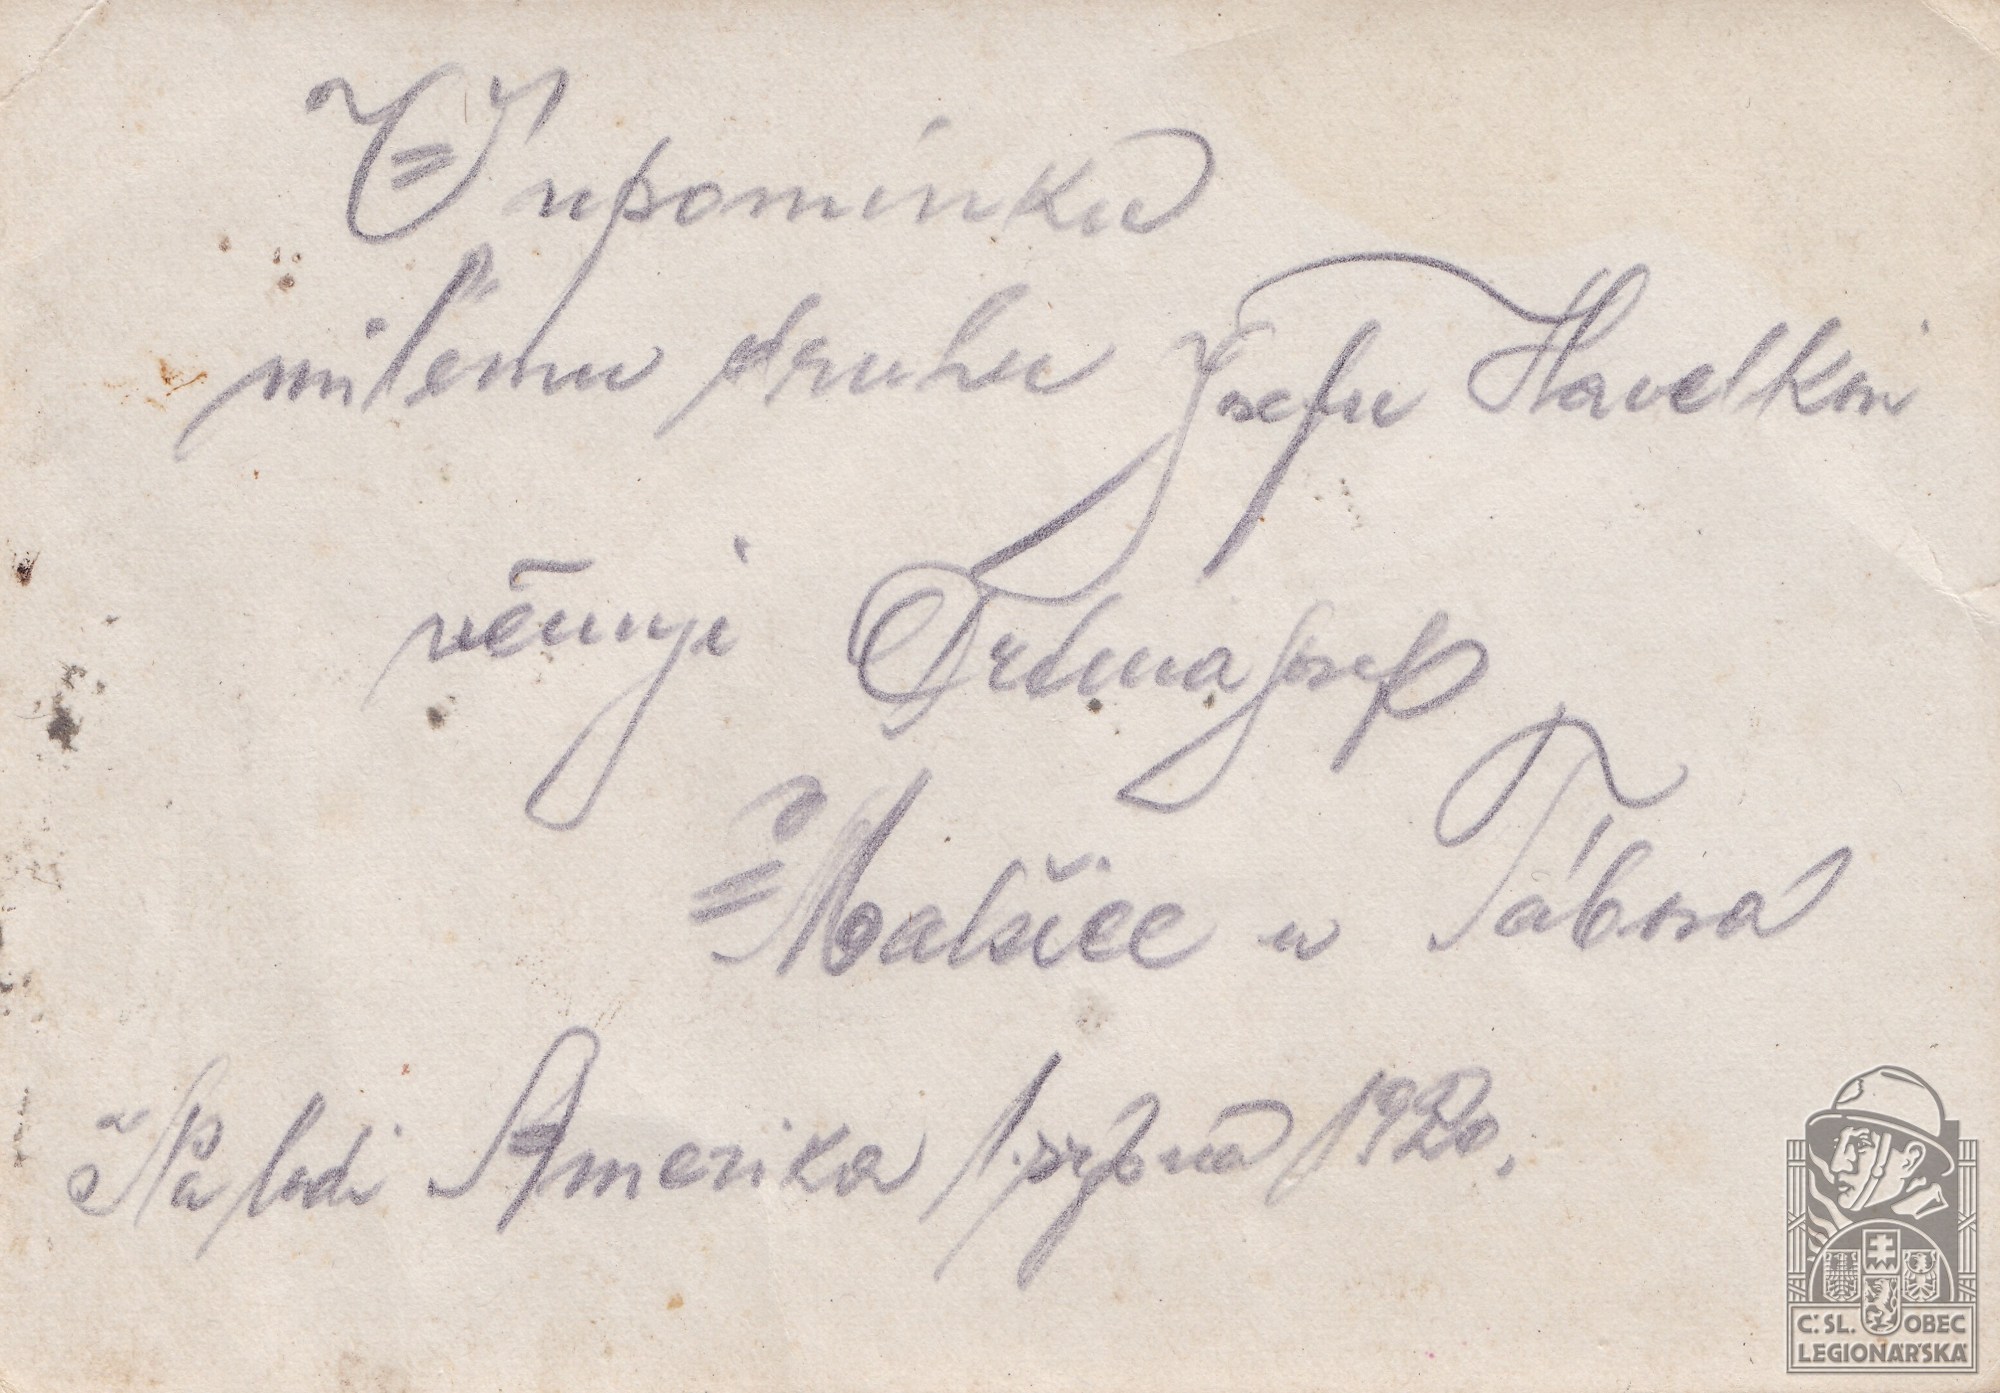 V upomínku
milému druhu Josefu Havelkovi
věnuji Drtina Josef
Malšice u Tábora
Na lodi Amerika 1. srpna 1920.
Č. SL. OBEC
LEGIONÁŘSKÁ